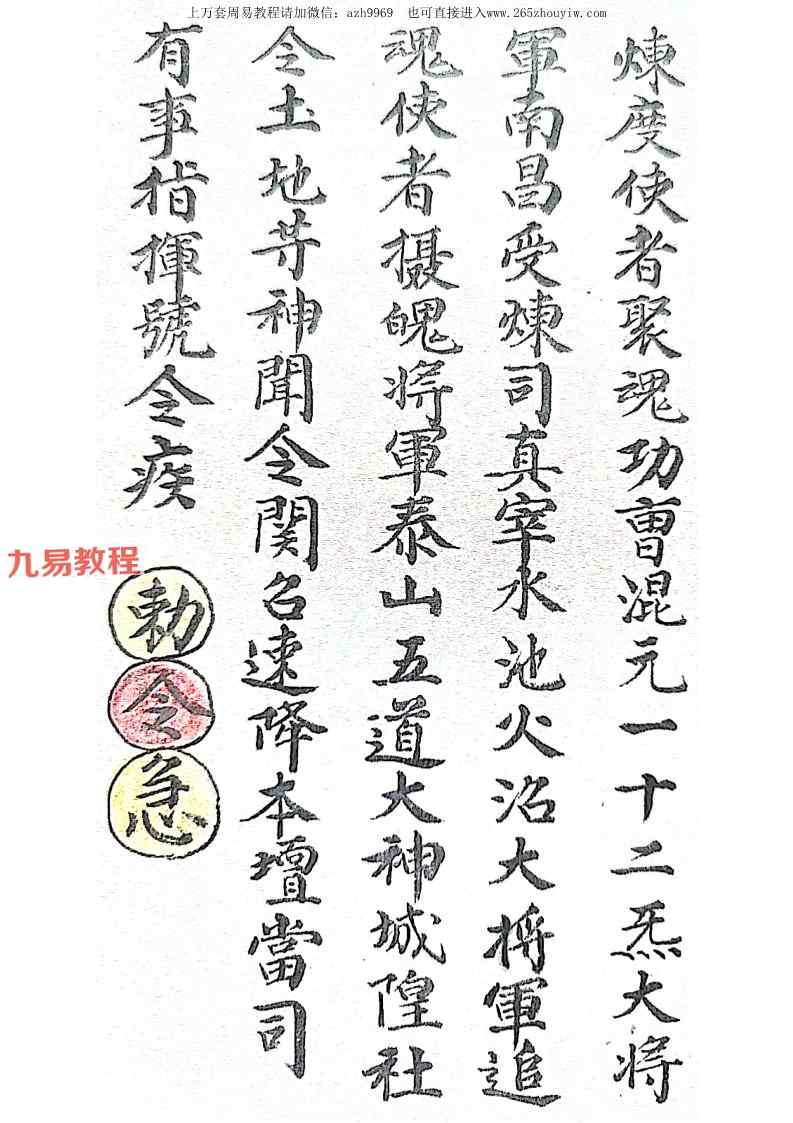 上万套周易教程请加微信：azh9969 也可直接进入www.265zhouyiw.com
煉度使者聚魂功曹混元一十二炁大将
軍南昌受煉司真宰水池火沼大将軍追
魂使者摄魄将軍泰山五道大神城隍社
令土地等神聞令関召速降本壇當司
有事指揮號令疾
九易教程
勅
令
急